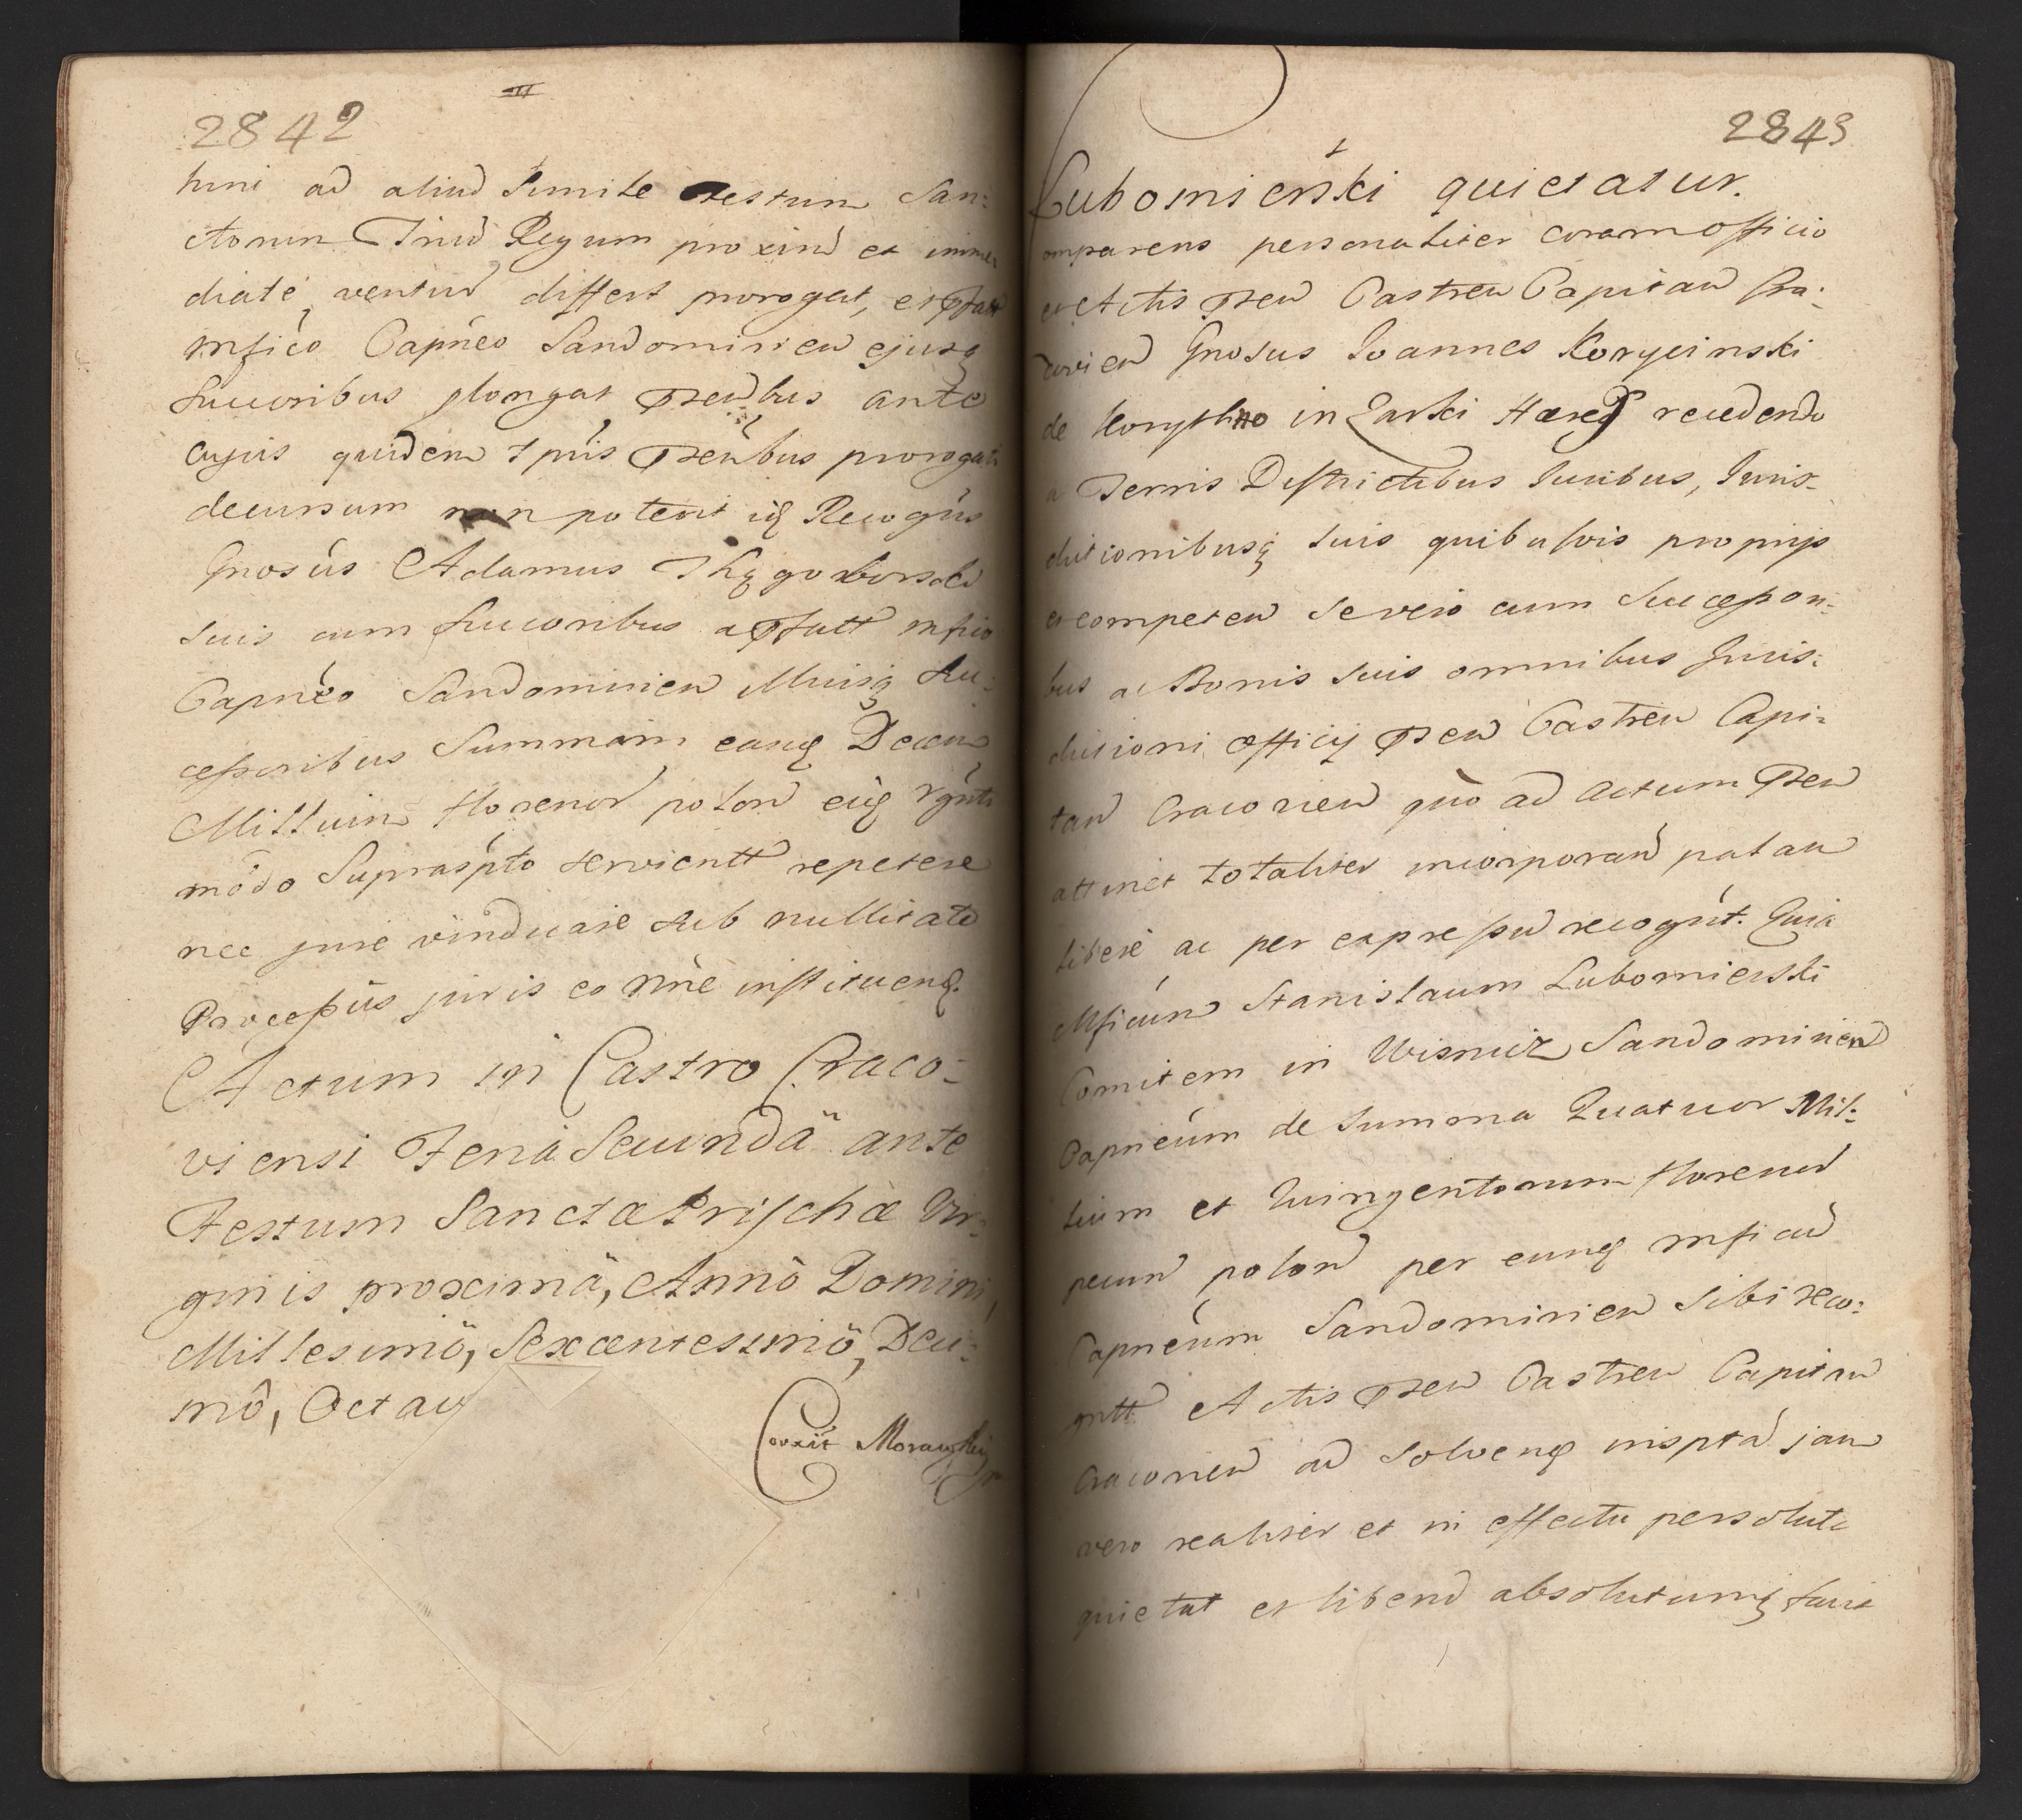 2842
huni ad aliud Simile Festum San:
ctorum Triud Regum proximd et imme
diate venturd differt prorogat, et
mfico Capneo Sandomirien ejusq
Succoribus plongat pntibus ante
cujus quidem tpris pntibus prorogati
decursum non poterit idq Recogns
Gnosus Adamus
suis cum Succoribus a mfico
Capneo Sandomirien illiusq Su:
cessoribus Summam eandq Decem
Millium florenord polond eidq rgnti
modo Suprascpto servientt repetere
nec jure vindicare sub nullitate
Processus juris eo nne instituendq.
Actum in Castro Craco-
viensi Feria Secunda ante
Festum Sanctæ Prischæ Vir-
ginis proxima, Anno Domini,
Millesimo, Sexcentesimo, Deci-
mo, Octavo
Corrxit Morawski
2843
Lubomierski quietatur.
omparens personaliter coram officio
et Actis pnten Castren Capitan Cra:
covien Gnosus Joannes Korycinski
de Korythno in Zarki Hæres recedendo
a Terris Districtibus Juribus, Juris-
dictionibusq suis quibusvis proprijs
et competen se vero cum Successori-
bus ac Bonis suis omnibus Juris:
dictioni Officij pnten Castren Capi-
tan Cracovien quo ad actum pnten
attinet totaliter incorporand palam
libere ac per expressum recognt. Quia
Mficum Stanislaum Lubomierski
Comitem in Wisnicz Sandomirien
Capneum de Summa Quatuor Mil-
lium et Quingentorum florenord
pecund polond per eundq mficum
Capneum Sandomirien sibi reco:
gntt Actis pnten Castren Capitan
Cracovien ad solvendq inscpta jam
vero realiter et in effectu persoluta
quietat et liberd absolutumq facit